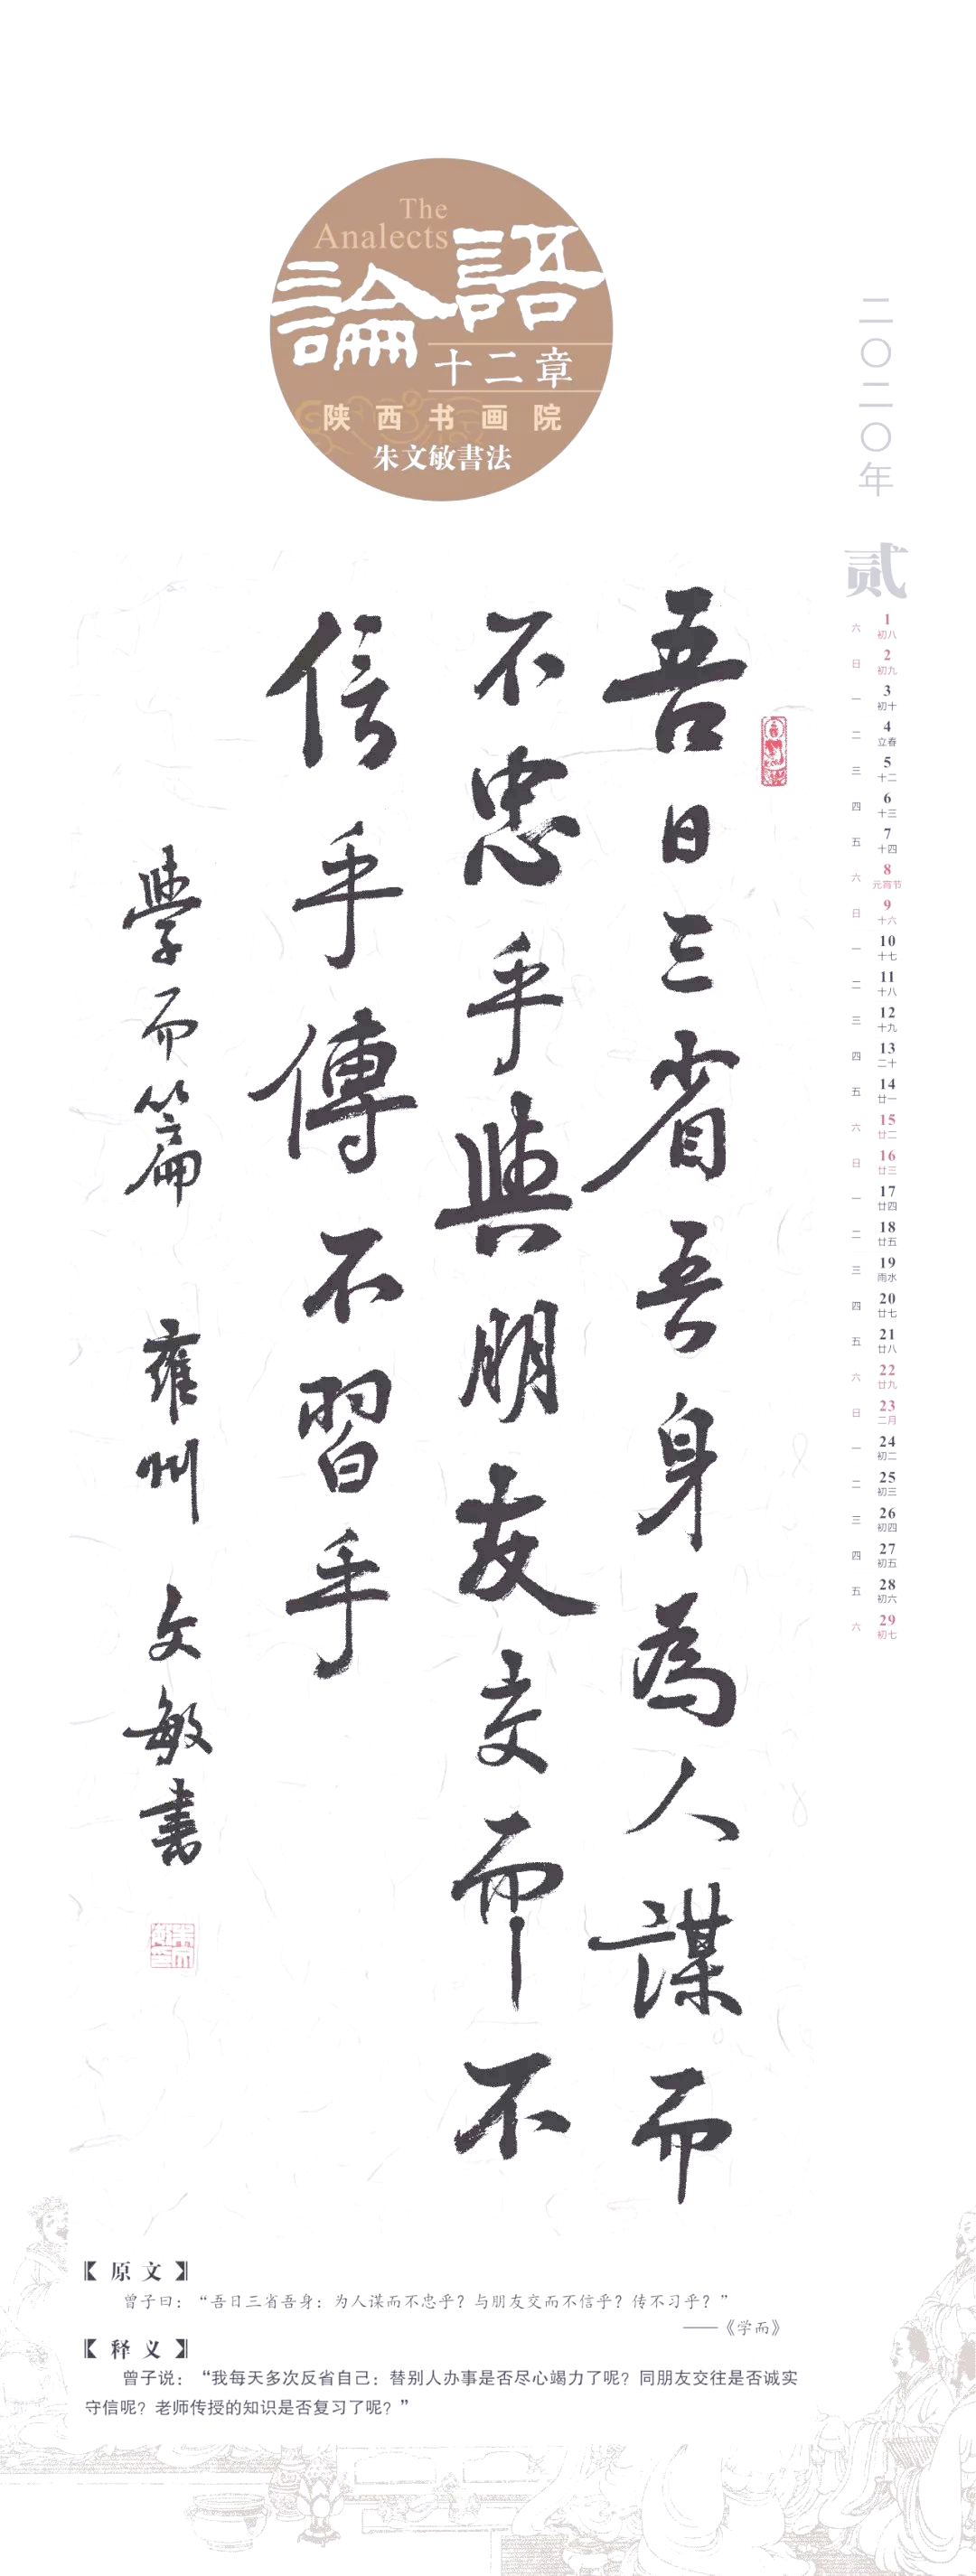 The
Analects
論語
十二章
陕西书画院
朱文敏書法
二〇二〇年
贰
六 1 初八
日 2 初九
一 3 初十
二 4 立春
三 5 十二
四 6 十三
五 7 十四
六 8 元宵节
日 9 十六
一 10 十七
二 11 十八
三 12 十九
四 13 二十
五 14 廿一
六 15 廿二
日 16 廿三
一 17 廿四
二 18 廿五
三 19 雨水
四 20 廿七
五 21 廿八
六 22 廿九
日 23 二月
一 24 初二
二 25 初三
三 26 初四
四 27 初五
五 28 初六
六 29 初七
吾日三省吾身為人謀而
不忠乎與朋友交而不
信乎傳不習乎
學而篇 雍州 文敏書
【原文】
曾子曰：“吾日三省吾身：为人谋而不忠乎？与朋友交而不信乎？传不习乎？”
——《学而》
【释义】
曾子说：“我每天多次反省自己：替别人办事是否尽心竭力了呢？同朋友交往是否诚实
守信呢？老师传授的知识是否复习了呢？”